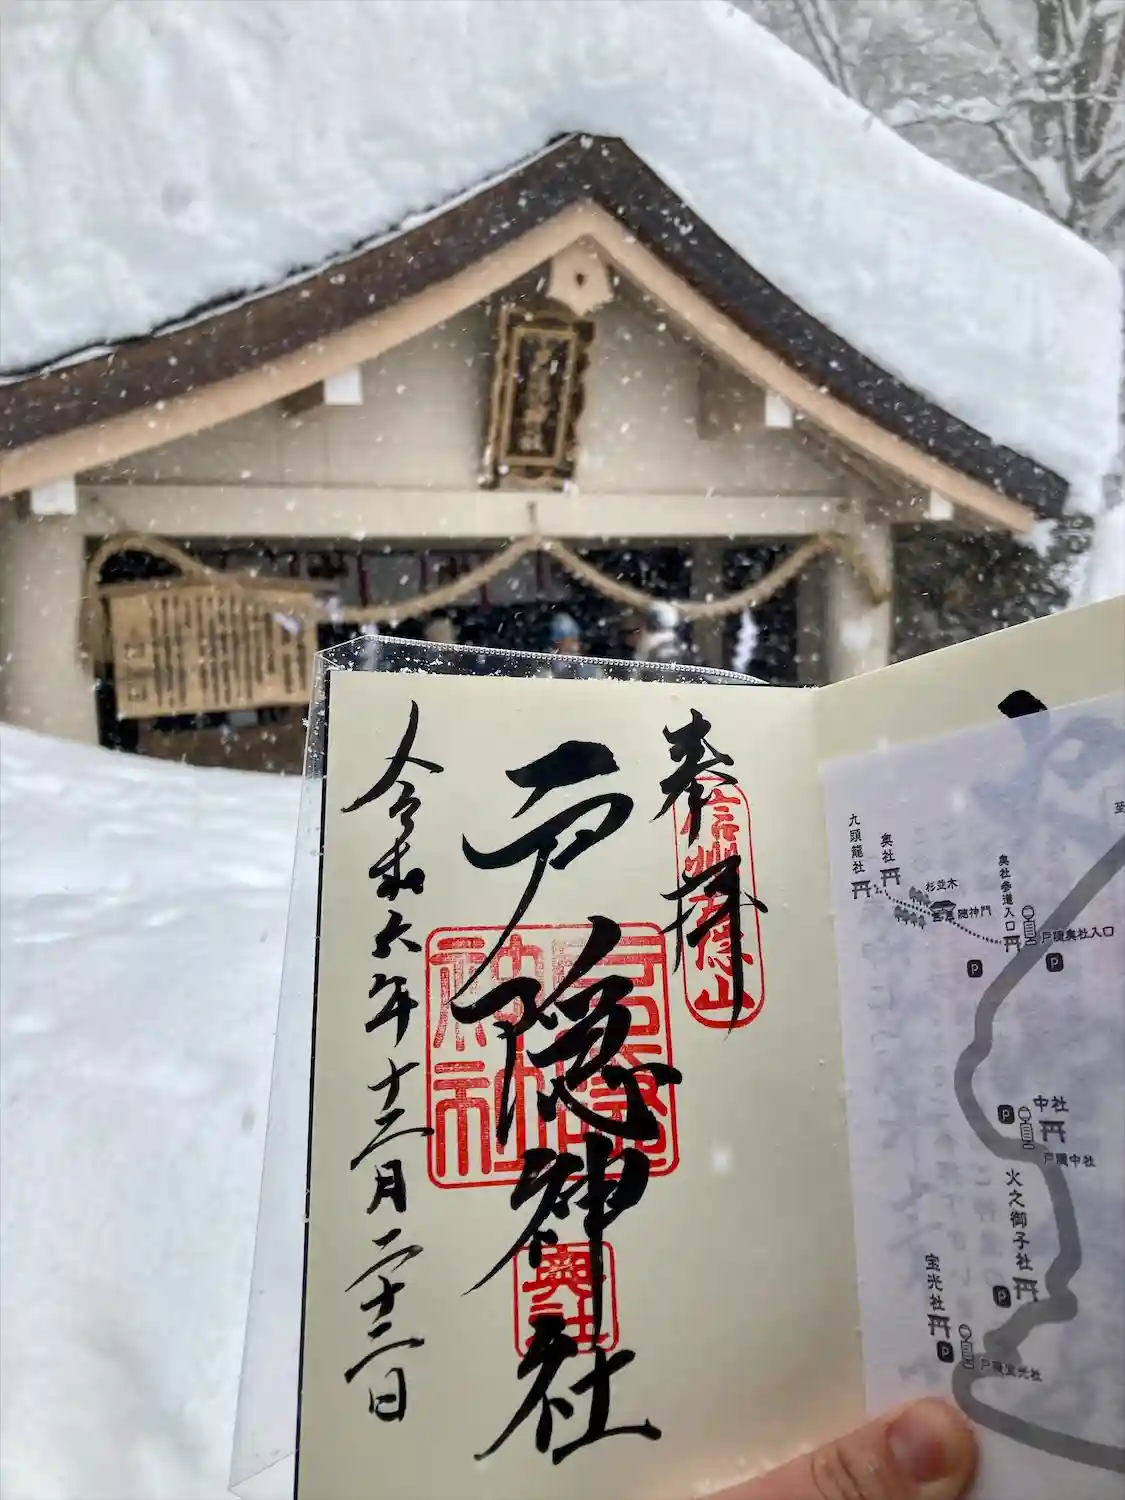 奉拝
信州戸隠山
戸隠神社
戸隠神社
奥社
令和六年十二月二十二日
九頭龍社
奥社
杉並木
随神門
奥社参道入口
戸隠奥社入口
P
P
至
中社
P
戸隠中社
火之御子社
P
宝光社
P
戸隠宝光社